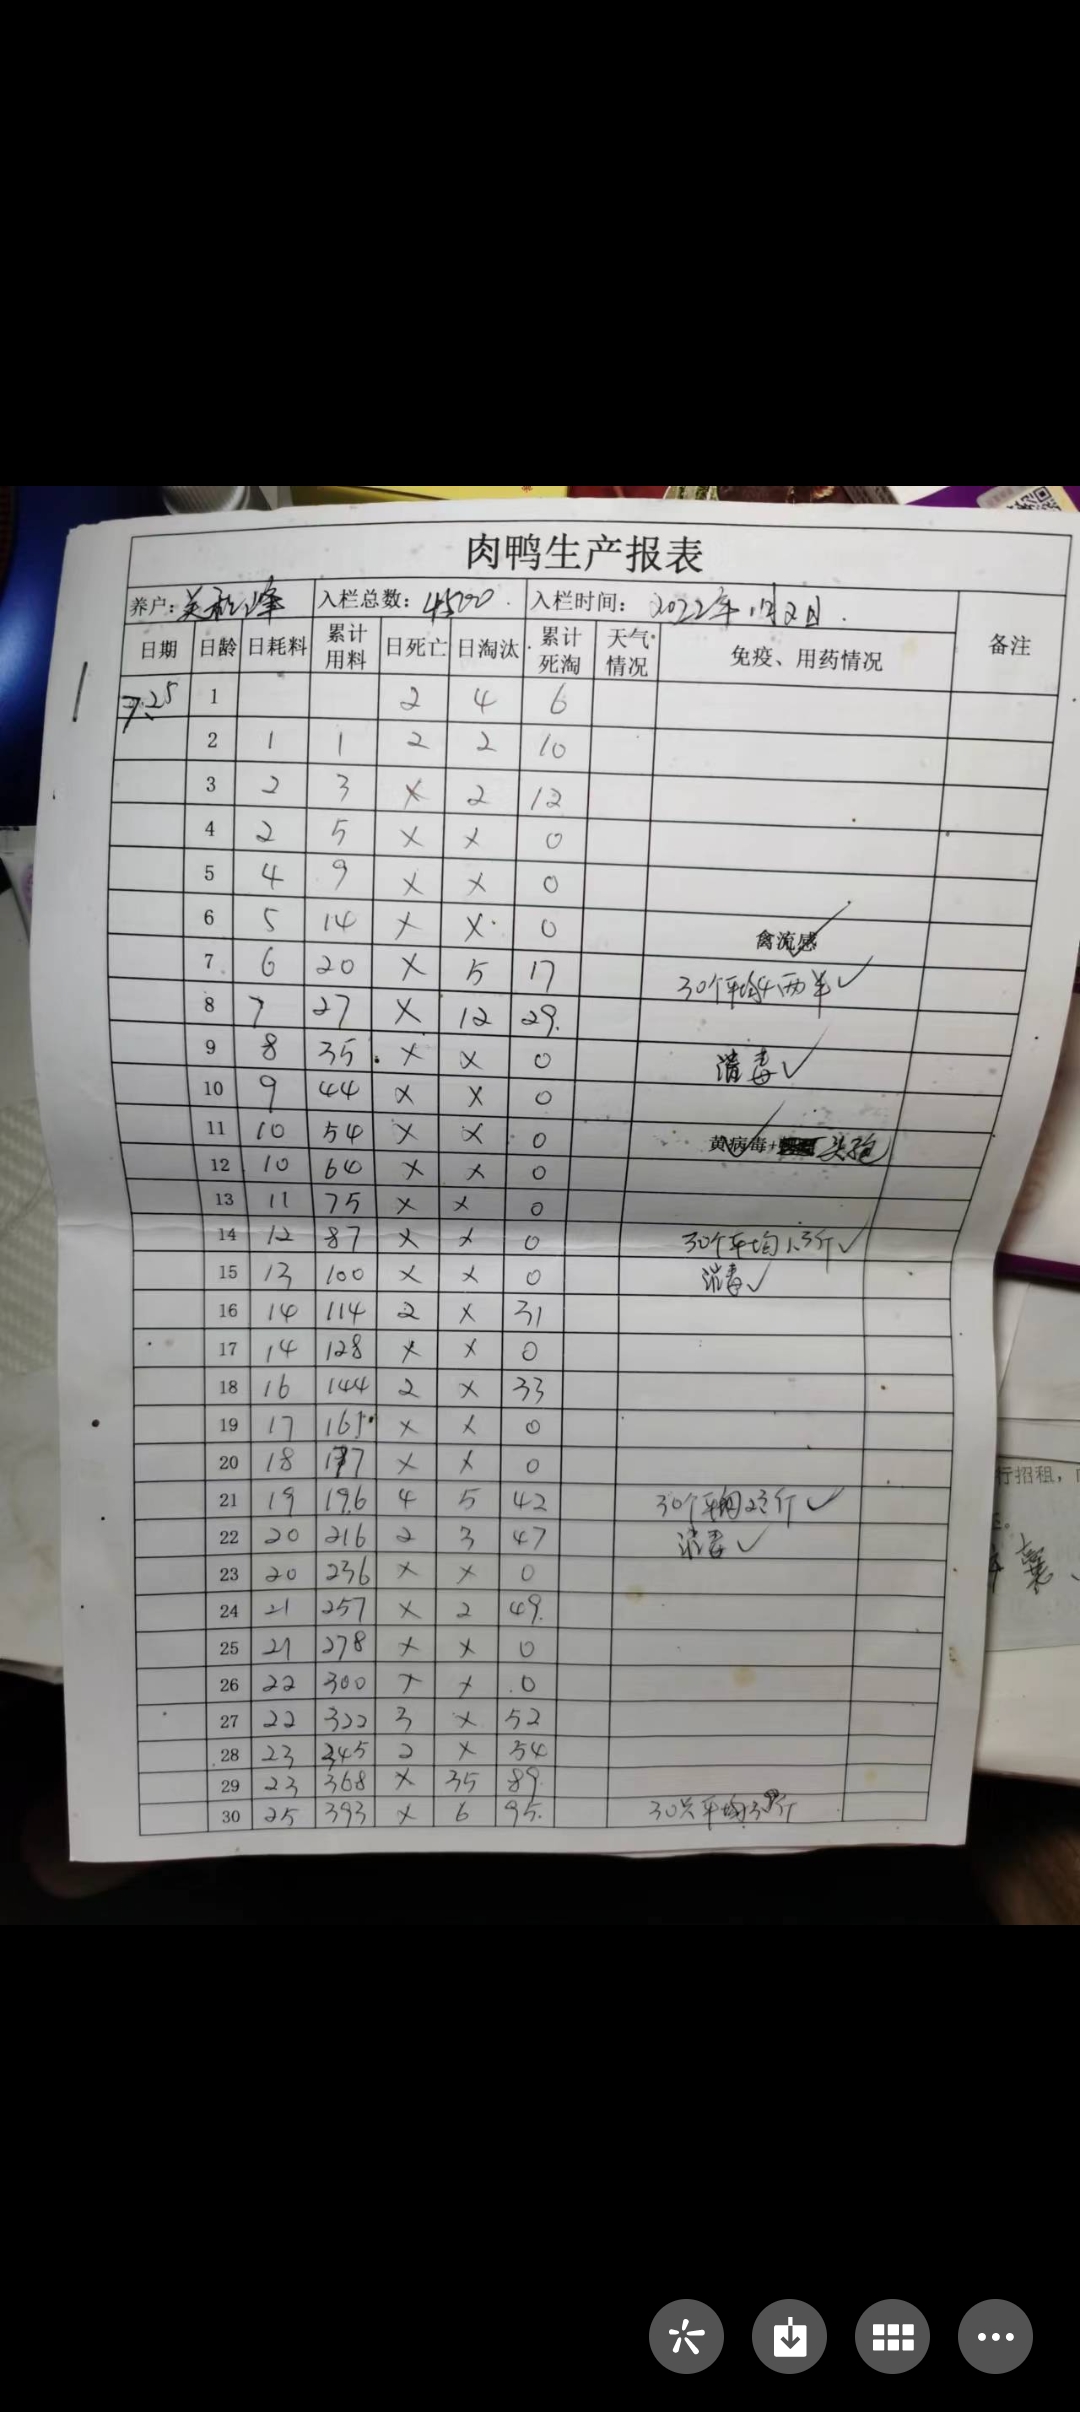 肉鸭生产报表
养户: 入栏总数: 4500 入栏时间: 2022年11月2日
日期 日龄 日耗料 累计用料 日死亡 日淘汰 累计死淘 天气情况 免疫、用药情况 备注
7.25 1 2 4 6
2 1 1 2 2 10
3 2 3 × 2 12
4 2 5 × × 0
5 4 9 × × 0
6 5 14 × × 0 禽流感 ✓
7 6 20 × 5 17 30个平均4两半 ✓
8 7 27 × 12 29.
9 8 35 × × 0 消毒 ✓
10 9 44 × × 0
11 10 54 × × 0 黄病毒+ 头孢
12 10 64 × × 0
13 11 75 × × 0
14 12 87 × × 0 30个平均1.3斤 ✓
15 13 100 × × 0 消毒 ✓
16 14 114 2 × 31
17 14 128 × × 0
18 16 144 2 × 33
19 17 161 × × 0
20 18 177 × × 0
21 19 196 4 5 42 30个平均 斤 ✓
22 20 216 2 3 47 消毒 ✓
23 20 236 × × 0
24 21 257 × 2 49.
25 21 278 × × 0
26 22 300 × × 0
27 22 322 3 × 52
28 23 345 2 × 54
29 23 368 × 35 89.
30 25 393 × 6 95. 30只平均 斤
行招租，